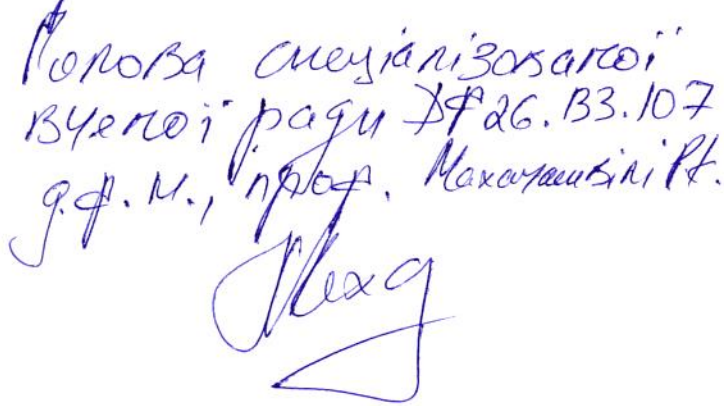 Голова спеціалізованої
вченої ради ДФ 26.133.107
д.ф.н., проф. Махачашвілі Р.К.